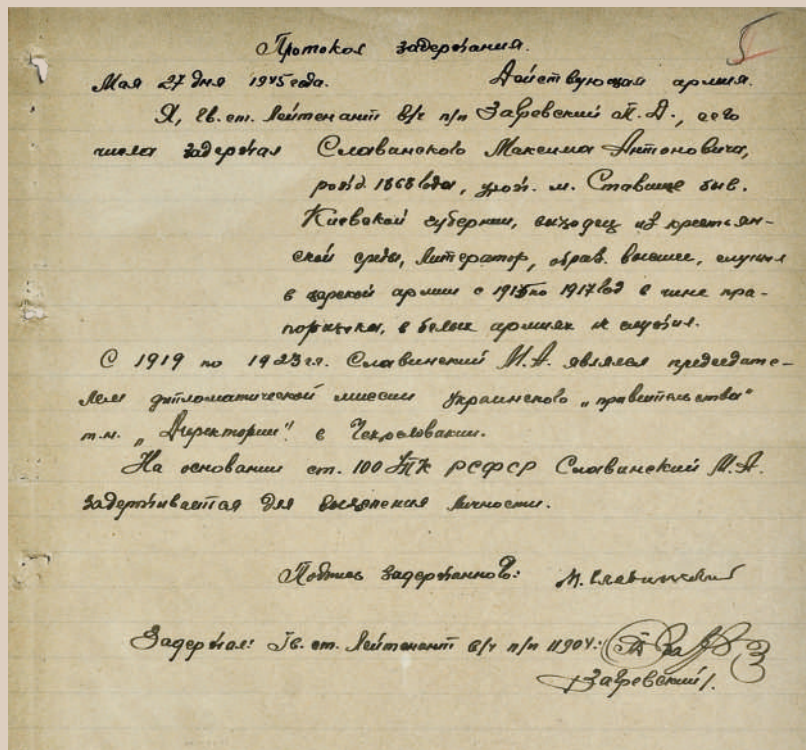 Протокол задержания.
Мая 27 дня 1945 года. Действующая армия.
Я, гв. ст. Лейтенант в/ч п/п Загревский П. А., сего
числа задержал Славинского Максима Антоновича,
рожд. 1868 года, урож. м. Ставище быв.
Киевской губернии, выходец из крестьян-
ской среды, литератор, образ. высшее, служил
в царской армии с 1915 по 1917 год в чине пра-
порщика, в белых армиях не служил.
С 1919 по 1923 г.г. Славинский М.А. являлся председате-
лем дипломатической миссии украинского „правительства"
т.н. „Директории" в Чехословакии.
На основании ст. 100 УПК РСФСР Славинский М.А.
задерживается для выяснения личности.
Подпись задержанного: М. Славинский
Задержал: Гв. ст. Лейтенант в/ч п/п 11904:
/Загревский/.